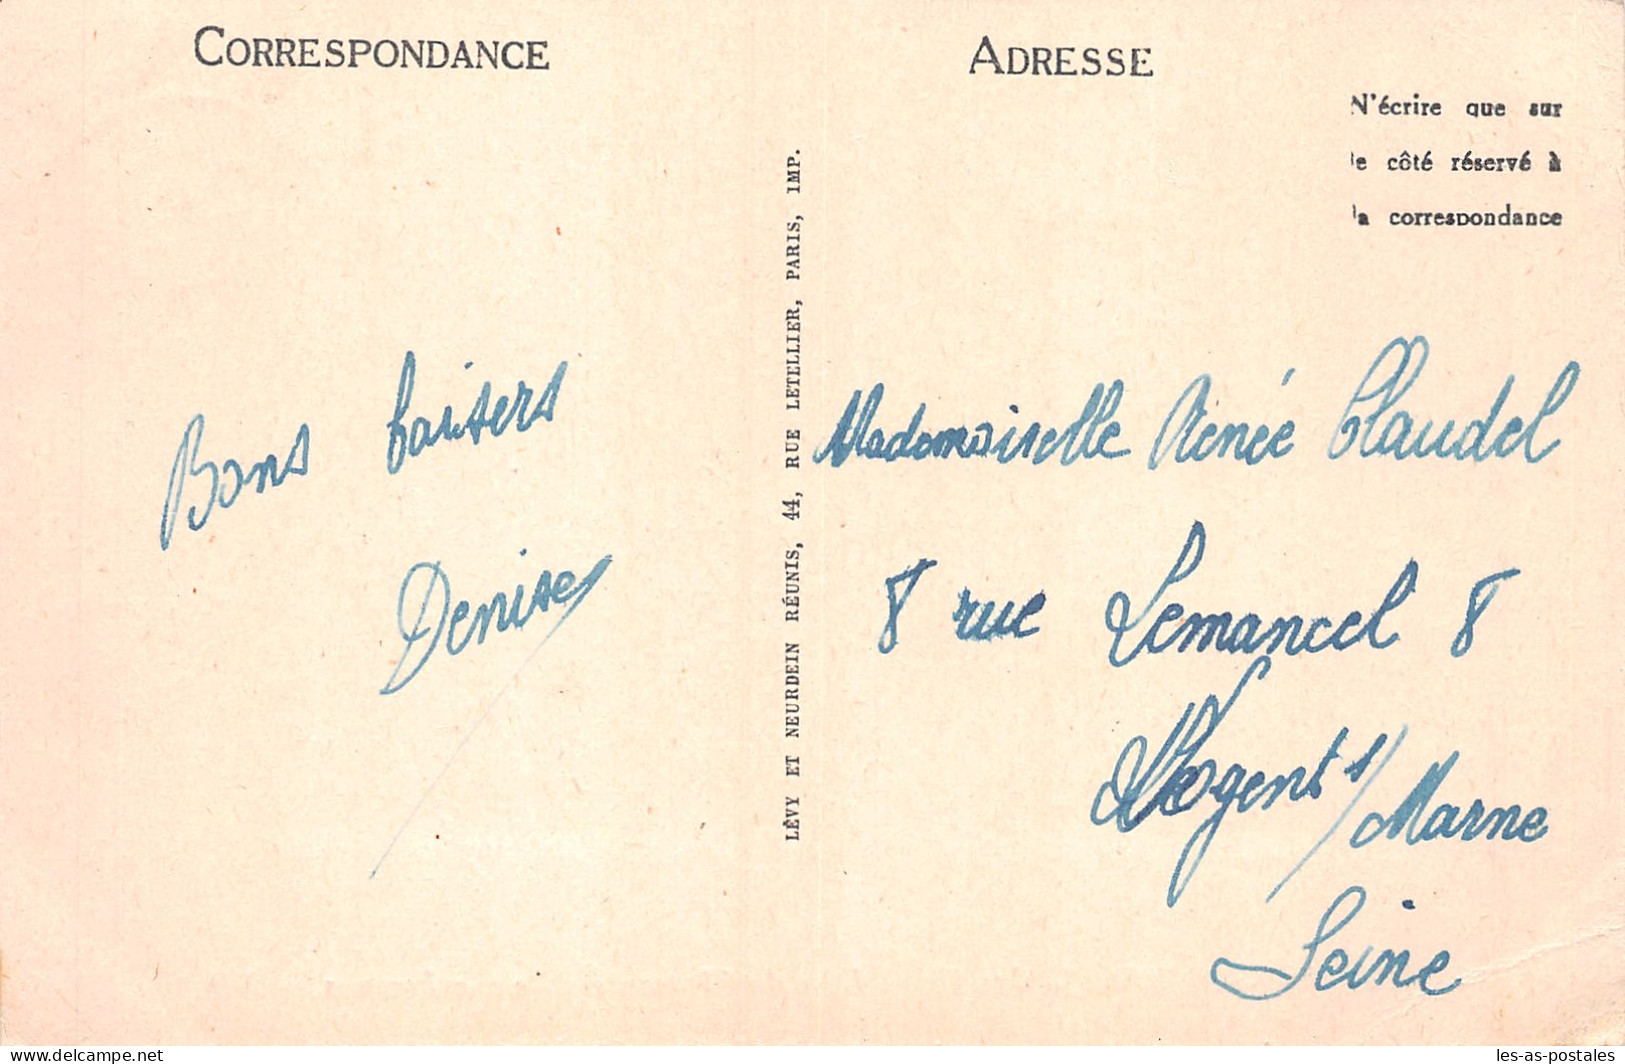 CORRESPONDANCE
Bons baisers
Denise
LÉVY ET NEURDEIN RÉUNIS, 44, RUE LETELLIER, PARIS, IMP.
ADRESSE
N'écrire que sur
le côté réservé à
la correspondance
Mademoiselle Renée Claudel
8 rue Lemancel 8
Nogent s/Marne
Seine
Delcampe.net
les-as-postales